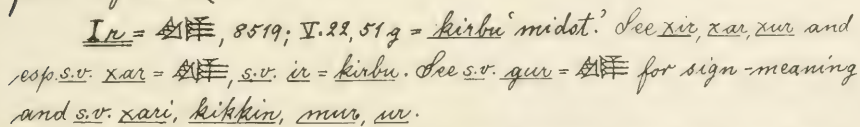 Ir = 𒄯, 8519; V. 22, 51 g = kirbu 'midst.' See xir, xar, xur and
esp. s.v. xar = 𒄯, s.v. ir = kirbu. See s.v. gur = 𒄯 for sign-meaning
and s.v. xari, kikkin, mur, ur.